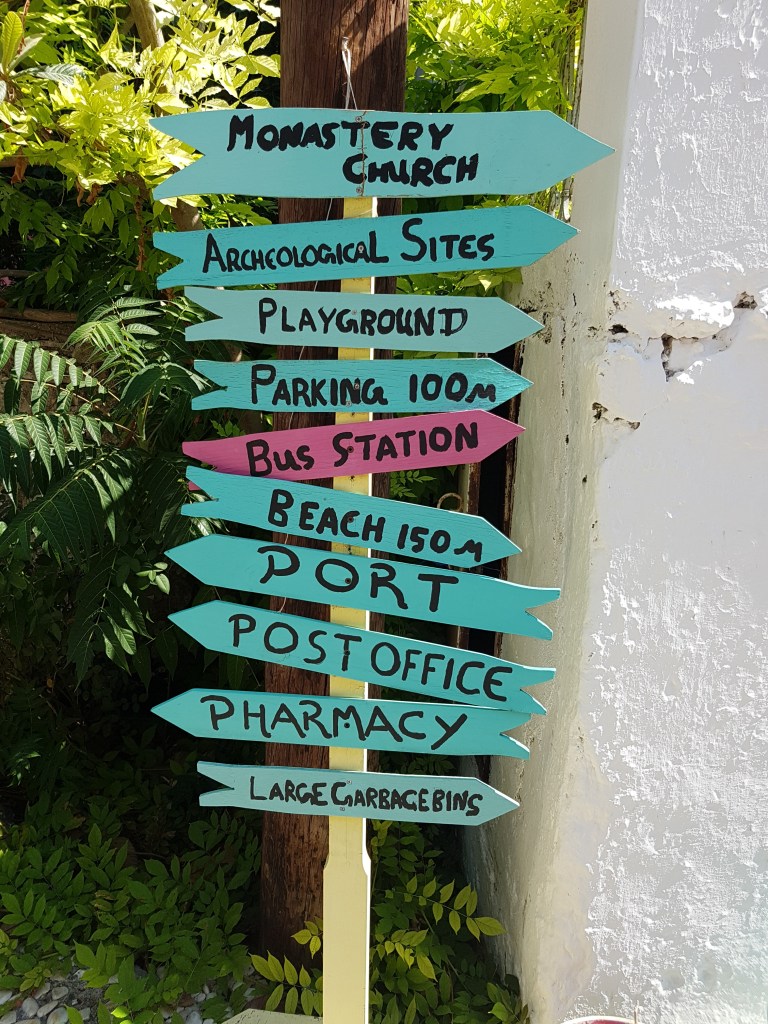 MONASTERY
CHURCH
ARCHEOLOGICAL SITES
PLAYGROUND
PARKING 100M
BUS STATION
BEACH 150M
PORT
POST OFFICE
PHARMACY
LARGE GARBAGE BINS